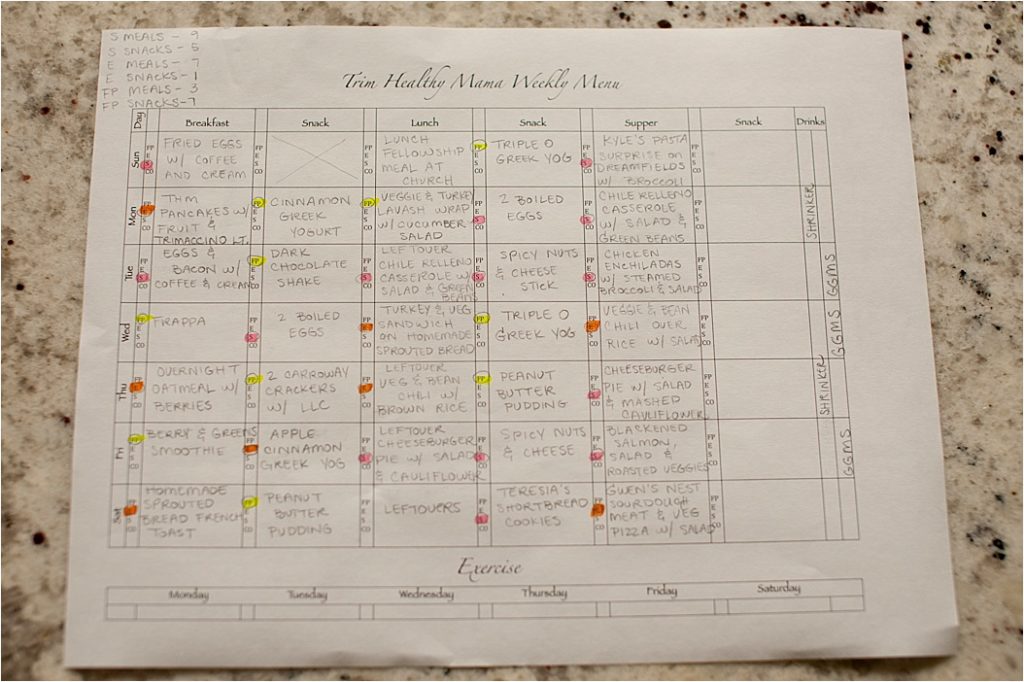 S MEALS - 9
S SNACKS - 5
E MEALS - 7
E SNACKS - 1
FP MEALS - 3
FP SNACKS - 7
Trim Healthy Mama Weekly Menu
Day Breakfast Snack Lunch Snack Supper Snack Drinks
Sun
FP E S CO
FRIED EGGS
W/ COFFEE
AND CREAM
LUNCH
FELLOWSHIP
MEAL AT
CHURCH
FP E S CO
TRIPLE O
GREEK YOG
FP E S CO
KYLE'S PASTA
SURPRISE on
DREAMFIELDS
W/ BROCCOLI
Mon
FP E S CO
THM
PANCAKES W/
FRUIT &
TRIMACCINO LT.
FP E S CO
CINNAMON
GREEK
YOGURT
FP E S CO
VEGGIE & TURKEY
LAVASH WRAP
W/ CUCUMBER
SALAD
FP E S CO
2 BOILED
EGGS
CHILE RELLENO
CASSEROLE
W/ SALAD &
GREEN BEANS
SHRINKER
Tue
FP E S CO
EGGS &
BACON W/
COFFEE & CREAM
FP E S CO
DARK
CHOCOLATE
SHAKE
FP E S CO
LEFTOVER
CHILE RELLENO
CASSEROLE W/
SALAD & GREEN
BEANS
FP E S CO
SPICY NUTS
& CHEESE
STICK
FP E S CO
CHICKEN
ENCHILADAS
W/ STEAMED
BROCCOLI & SALAD
FP E S CO
GGMS
Wed
FP E S CO
FRAPPA
FP E S CO
2 BOILED
EGGS
FP E S CO
TURKEY & VEG
SANDWICH
ON HOMEMADE
SPROUTED BREAD
FP E S CO
TRIPLE O
GREEK YOG
FP E S CO
VEGGIE & BEAN
CHILI OVER
RICE W/ SALAD
FP E S CO
GGMS
Thu
FP E S CO
OVERNIGHT
OATMEAL W/
BERRIES
FP E S CO
2 CARROWAY
CRACKERS
W/ LLC
FP E S CO
LEFTOVER
VEG & BEAN
CHILI W/
BROWN RICE
FP E S CO
PEANUT
BUTTER
PUDDING
FP E S CO
CHEESEBURGER
PIE W/ SALAD
& MASHED
CAULIFLOWER
FP E S CO
SHRINKER
Fri
FP E S CO
BERRY & GREENS
SMOOTHIE
FP E S CO
APPLE
CINNAMON
GREEK YOG
FP E S CO
LEFTOVER
CHEESEBURGER
PIE W/ SALAD
& CAULIFLOWER
FP E S CO
SPICY NUTS
& CHEESE
FP E S CO
BLACKENED
SALMON,
SALAD &
ROASTED VEGGIES
FP E S CO
GGMS
Sat
FP E S CO
HOMEMADE
SPROUTED
BREAD FRENCH
TOAST
FP E S CO
PEANUT
BUTTER
PUDDING
FP E S CO
LEFTOVERS
FP E S CO
TERESIA'S
SHORTBREAD
COOKIES
FP E S CO
GWEN'S NEST
SOURDOUGH
MEAT & VEG
PIZZA W/ SALAD
FP E S CO
Exercise
Monday Tuesday Wednesday Thursday Friday Saturday